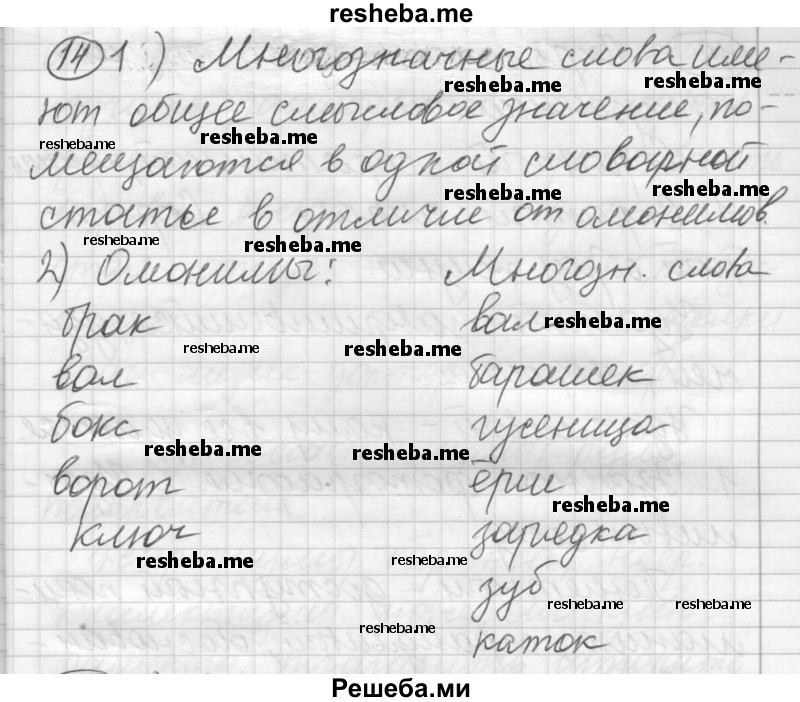 resheba.me
14 1) Многозначные слова име-
resheba.me resheba.me
ют общее смысловое значение, по-
resheba.me resheba.me
мещаются в одной словарной
resheba.me resheba.me
статье в отличие от омонимов.
resheba.me resheba.me
2) Омонимы: Многозн. слова
брак вал resheba.me
resheba.me resheba.me
вал барашек
бокс гусеница
resheba.me resheba.me
ворот ёрш
resheba.me
ключ зарядка
resheba.me resheba.me
зуб
resheba.me resheba.me
resheba.me
каток
Решеба.ми